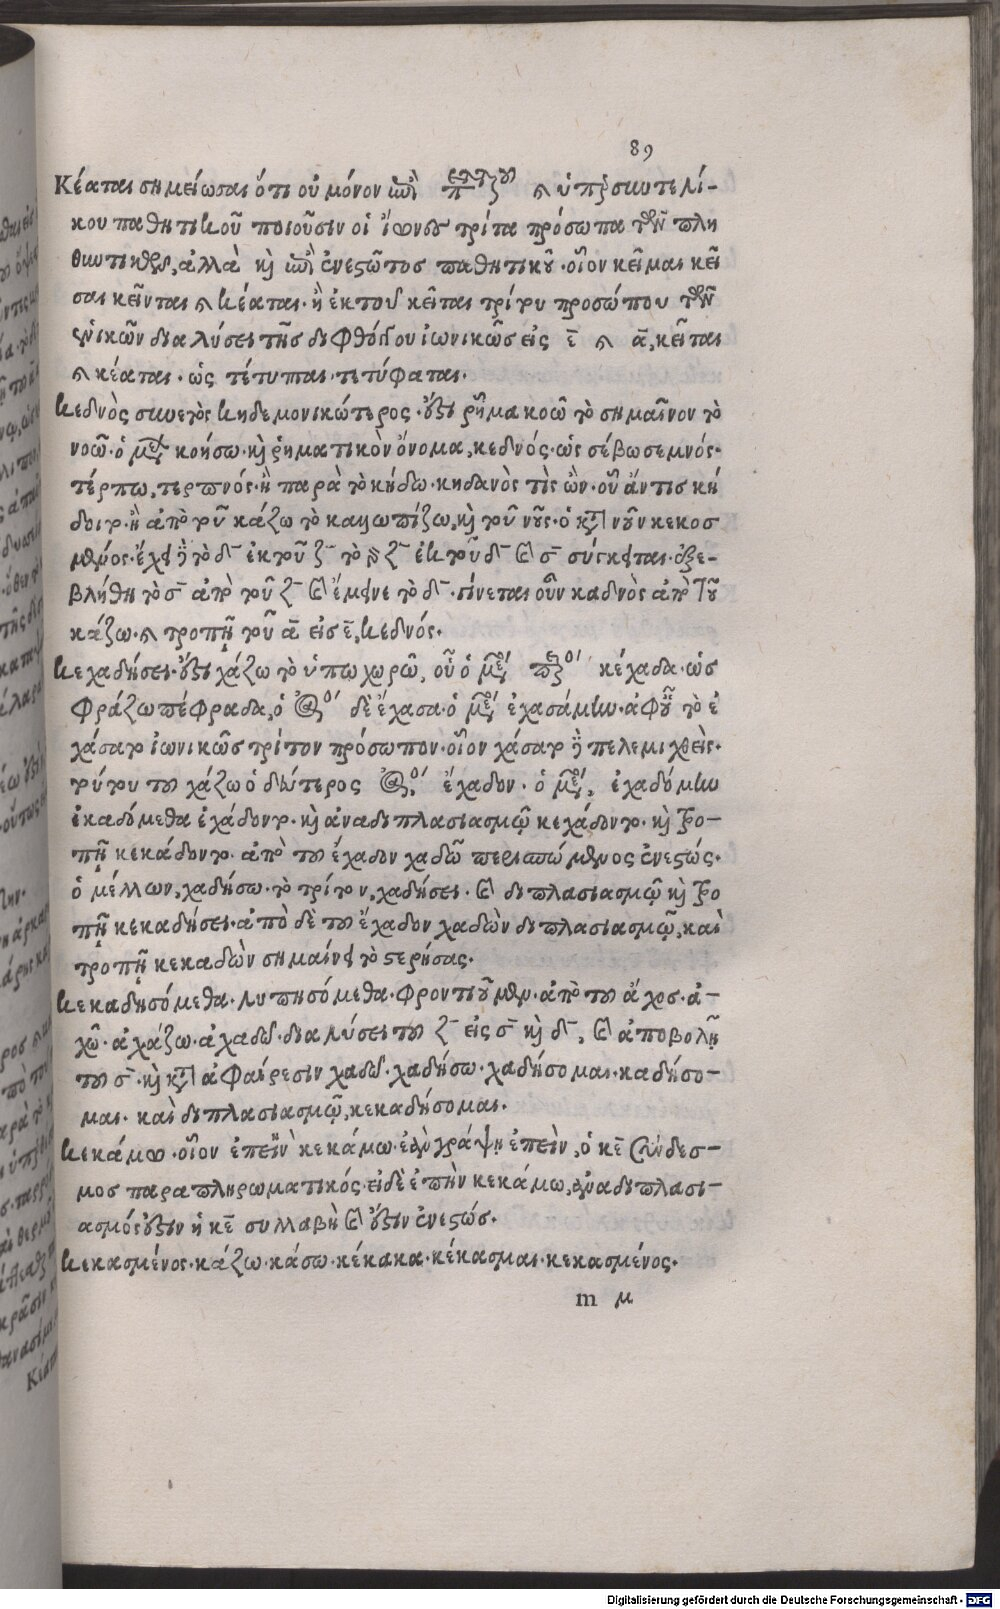 89
Κέαται σημείωσαι ότι ού μόνον επί ή ύπερσυντελί-
κου παθητικού ποιούσιν οί ίωνες τρίτα πρόσωπα των πλη
θυντικών, αλλά και επί ενεστώτος παθητικού· οίον κείμαι κεί
σαι κείνται και κέαται· ή εκ του κείται τρίτου προσώπου των
ενικών διαλύσει της διφθόγγου ιωνικώς εις ε̄ και ᾱ, κείται
και κέαται· ώς τέτυπται τετύφαται.
Κεδνός συνετός κηδεμονικώτερος· έστι ρήμα κοώ το σημαίνον το
νοώ· ό μέλλων κοήσω· και ρηματικόν όνομα, κεδνός· ώς σέβω σεμνός·
τέρπω, τερπνός· ή παρά το κήδω· κηδανός τις ών· ού άντις κή
δοιτο· ή από του κάζω το καλλωπίζω, και του νους· ό κατά νούν κεκοσ
μένος· έχει δε το δ̄ εκ του ζ̄ το δε ζ̄ εκ του δ̄ και σ̄ σύγκειται· εξε-
βλήθη το σ̄ από του ζ̄ και έμεινε το δ̄· γίνεται ούν καδνός από του
κάζω· και τροπή του ᾱ εις ε̄, κεδνός.
Κεχαδήσει· έστι χάζω το υποχωρώ, ού ό μέσος κέχαδα· ώς
φράζω πέφραδα, ό δε έχασα· ό μέσος εχασάμην· αφού το ε
χάσατο ιωνικώς τρίτον πρόσωπον· οίον χάσατο δε πελεμιχθείς·
τούτου του χάζω ό δεύτερος έχαδον· ό μέσος, εχαδόμην
εκαδόμεθα εχάδοντο· και αναδιπλασιασμώ κεχάδοντο· και τρο-
πή κεκάδοντο· από του έχαδον χαδώ περισπώμενος ενεστώς·
ό μέλλων, χαδήσω· το τρίτον, χαδήσει· και διπλασιασμώ και τρο
πή κεκαδήσει· από δε του έχαδον χαδών διπλασιασμώ, και
τροπή κεκαδών σημαίνει το στερήσας.
Κεκαδησόμεθα· λυπησόμεθα· φροντιούμεν· από του άχος· ά-
χω· αχάζω· αχαδώ· διαλύσει του ζ̄ εις σ̄ και δ̄, και αποβολή
του σ̄· και κατά αφαίρεσιν χαδώ· χαδήσω· χαδήσομαι· καδήσο-
μαι· και διπλασιασμώ, κεκαδήσομαι.
Κεκάμω· οίον επεί κεκάμω· εάν γράψη επείν, ό κε̄ σύνδεσ-
μος παραπληρωματικός· ει δε επήν κεκάμω, αναδιπλασι-
ασμός έστιν ή κε̄ συλλαβή και έστιν ενεστώς.
Κεκασμένος· κάζω· κάσω· κέκακα· κέκασμαι· κεκασμένος.
m μ
Digitalisierung gefördert durch die Deutsche Forschungsgemeinschaft - DFG